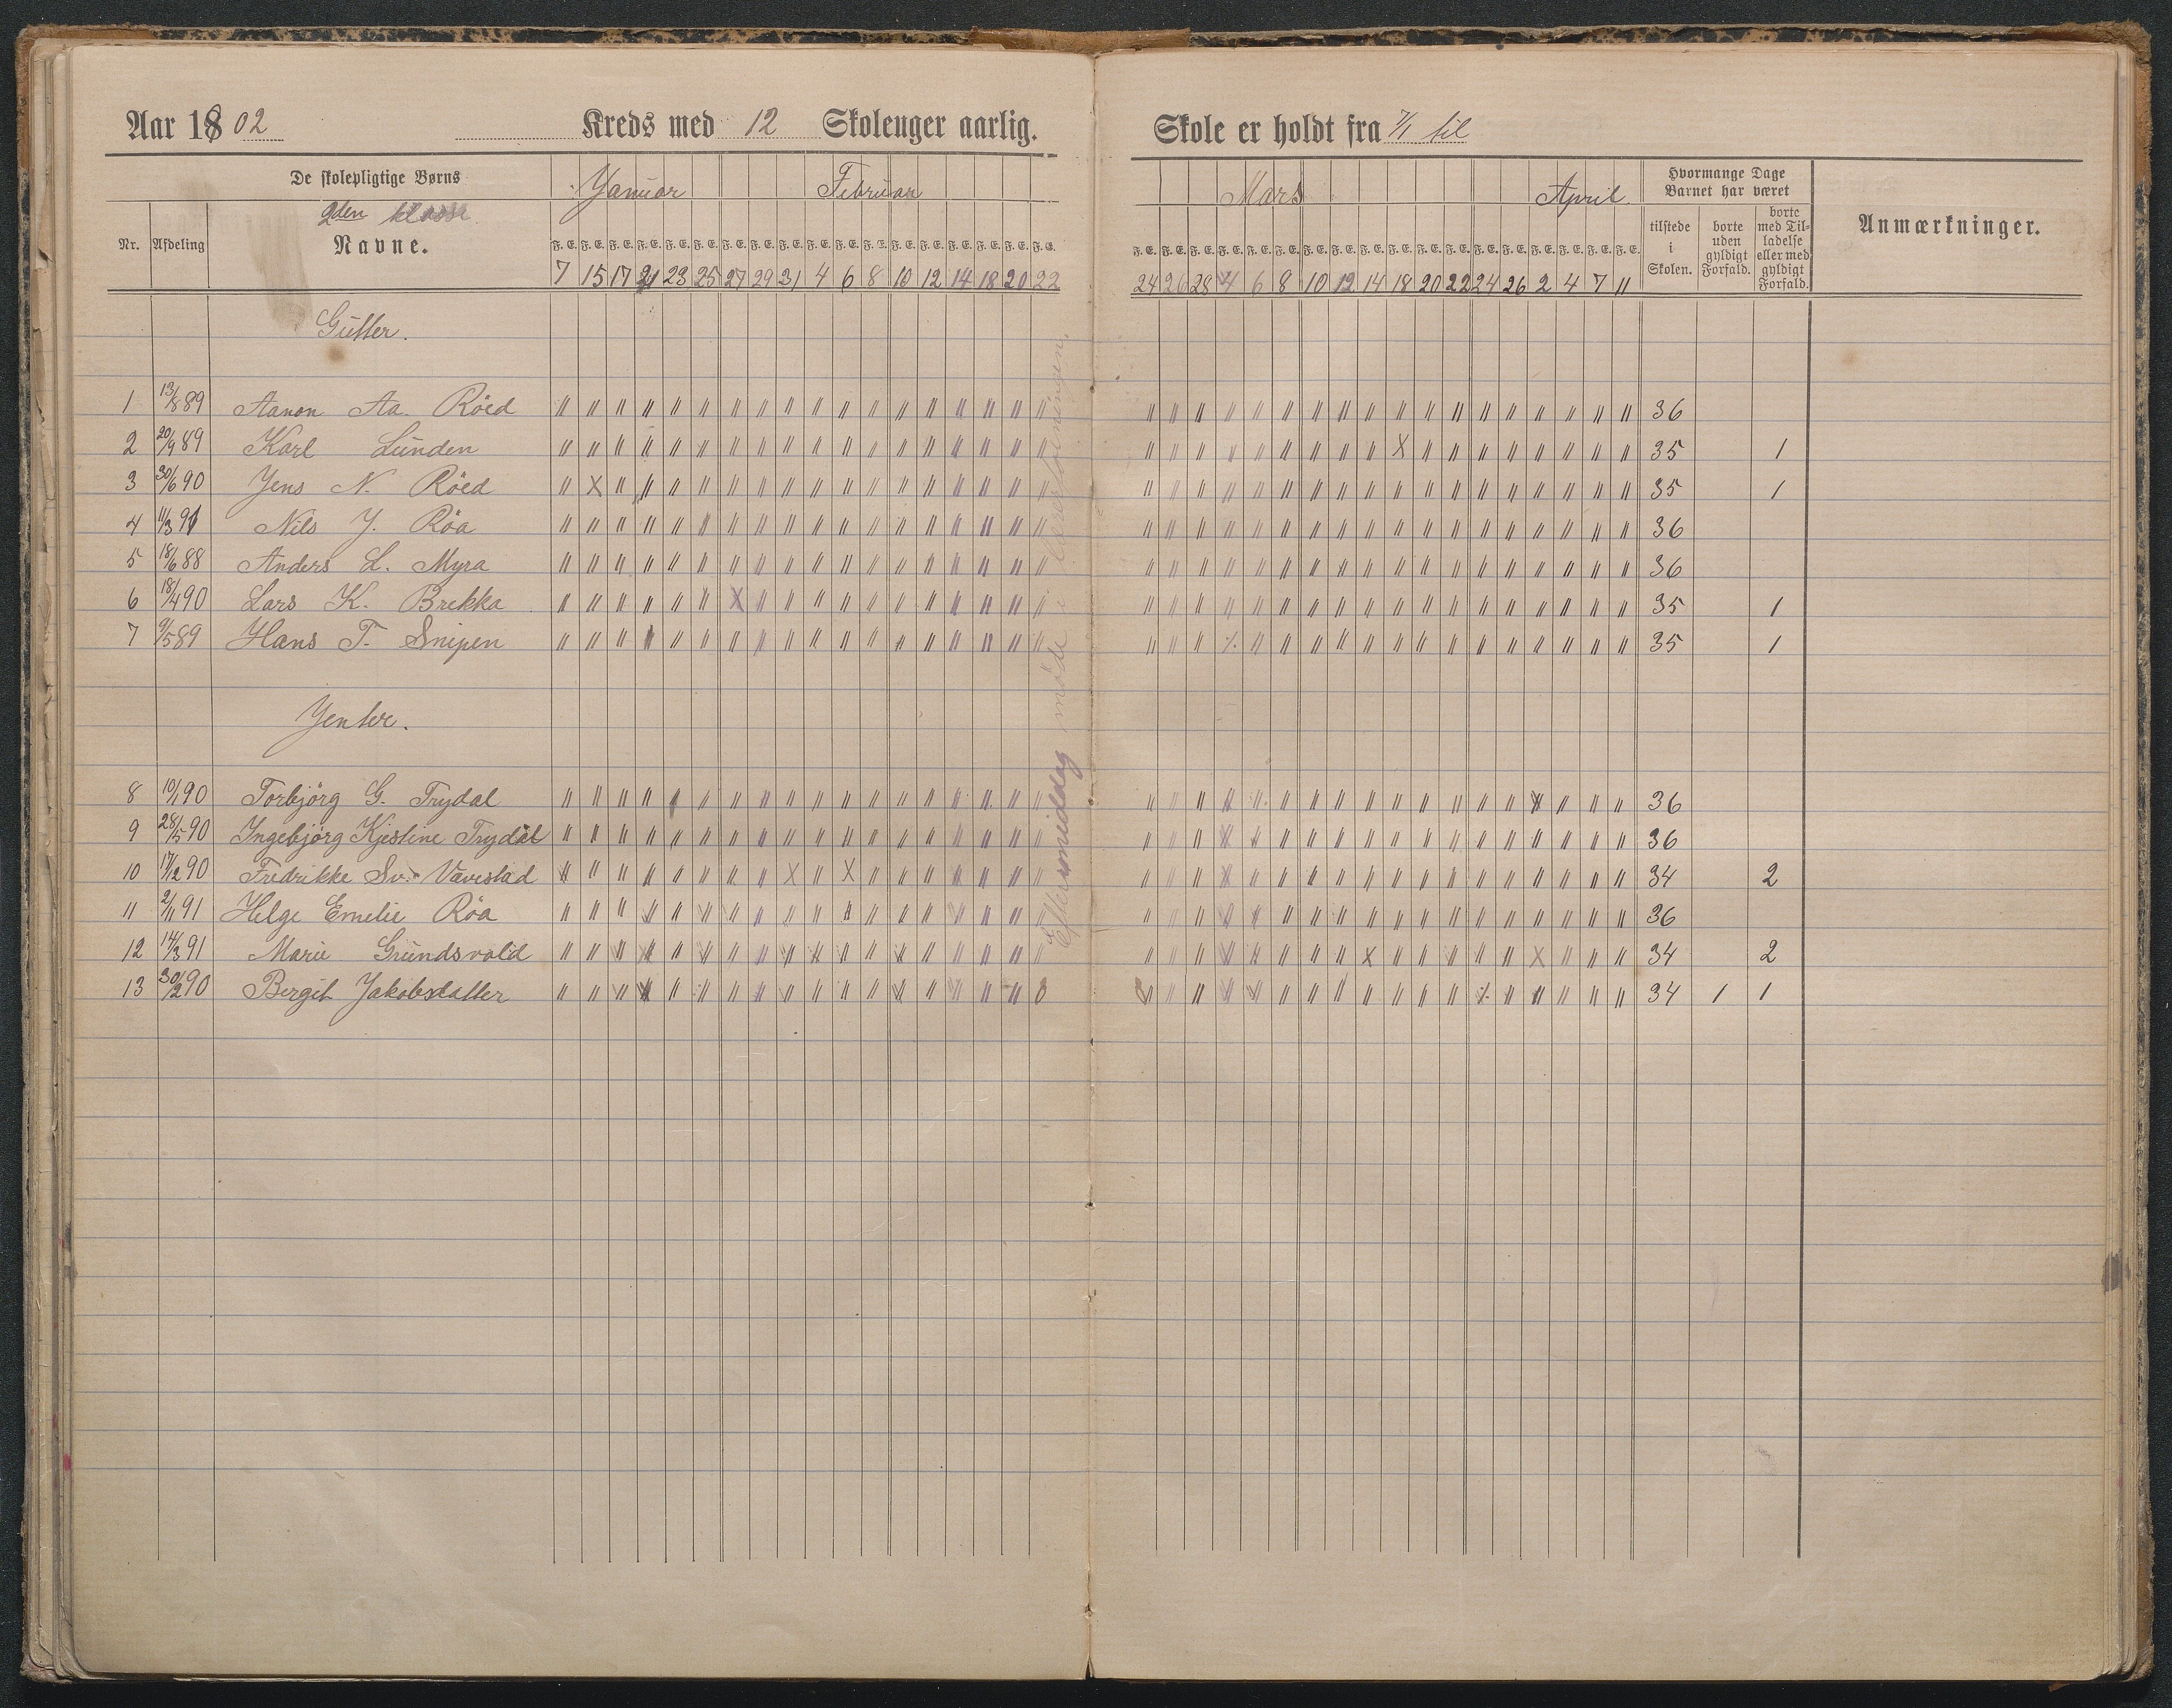 Aar 1802 Kreds med 12 Skoleuger aarlig. Skole er holdt fra 7/1 til
De skolepligtige Børns Januar Februar Mars April Hvormange Dage Barnet har været
2den klasse
Nr. Afdeling Navne. F. E. F. E. F. E. F. E. F. E. F. E. F. E. F. E. F. E. F. E. F. E. F. E. F. E. F. E. F. E. F. E. F. E. F. E. F. E. F. E. F. E. F. E. F. E. F. E. F. E. F. E. F. E. F. E. F. E. F. E. F. E. F. E. F. E. F. E. F. E. F. E. tilstede i Skolen. borte uden gyldigt Forfald. borte med Tilladelse eller med gyldigt Forfald. Anmærkninger.
7 15 17 21 23 25 27 29 31 4 6 8 10 12 14 18 20 22 24 26 28 4 6 8 10 12 14 18 20 22 24 26 2 4 7 11
Gutter.
1 13/8 89 Aanon Aa. Röed 36
2 20/9 89 Karl Lunden X 35 1
3 30/6 90 Jens N. Röed X 35 1
4 11/3 91 Nils J. Röa 36
5 18/6 88 Anders L. Myra 36
6 18/4 90 Lars K. Brekka X 35 1
7 9/5 89 Hans T. Snipen 35 1
Jenter.
8 10/1 90 Torbjörg G. Trydal 36
9 28/5 90 Ingebjörg Kjestine Trydal 36
10 17/12 90 Fredrikke Sv. Vævestad X X 34 2
11 2/11 91 Helge Emelie Röa 36
12 14/3 91 Marie Grundsvold X X 34 2
13 30/2 90 Bergit Jakobslatter 0 34 1 1
Eftermiddag möde i